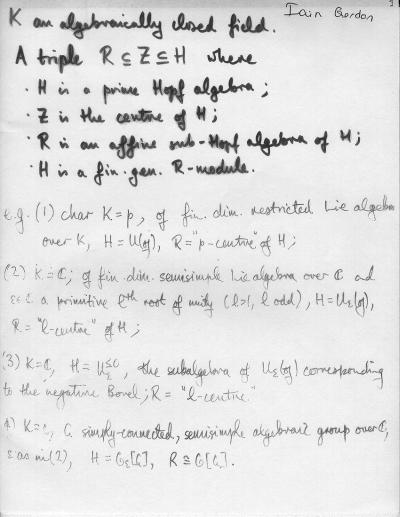 Iain Gordon
K an algebraically closed field.
A triple R ⊆ Z ⊆ H where
· H is a prime Hopf algebra;
· Z is the centre of H;
· R is an affine sub-Hopf algebra of H;
· H is a fin. gen. R-module.
e.g. (1) char K = p, 𝔤 fin. dim. restricted Lie algebra
over K, H = U(𝔤), R = "p-centre" of H;
(2) K = ℂ; 𝔤 fin. dim. semisimple Lie algebra over ℂ and
ε∈ℂ a primitive lth root of unity (l>1, l odd), H = Uε(𝔤),
R = "l-centre" of H;
(3) K = ℂ, H = Uε≤0, the subalgebra of Uε(𝔤) corresponding
to the negative Borel; R = "l-centre"
4) K = ℂ, G simply-connected, semisimple algebraic group over ℂ,
ε as in (2), H = Oε[G], R ≅ O[G].